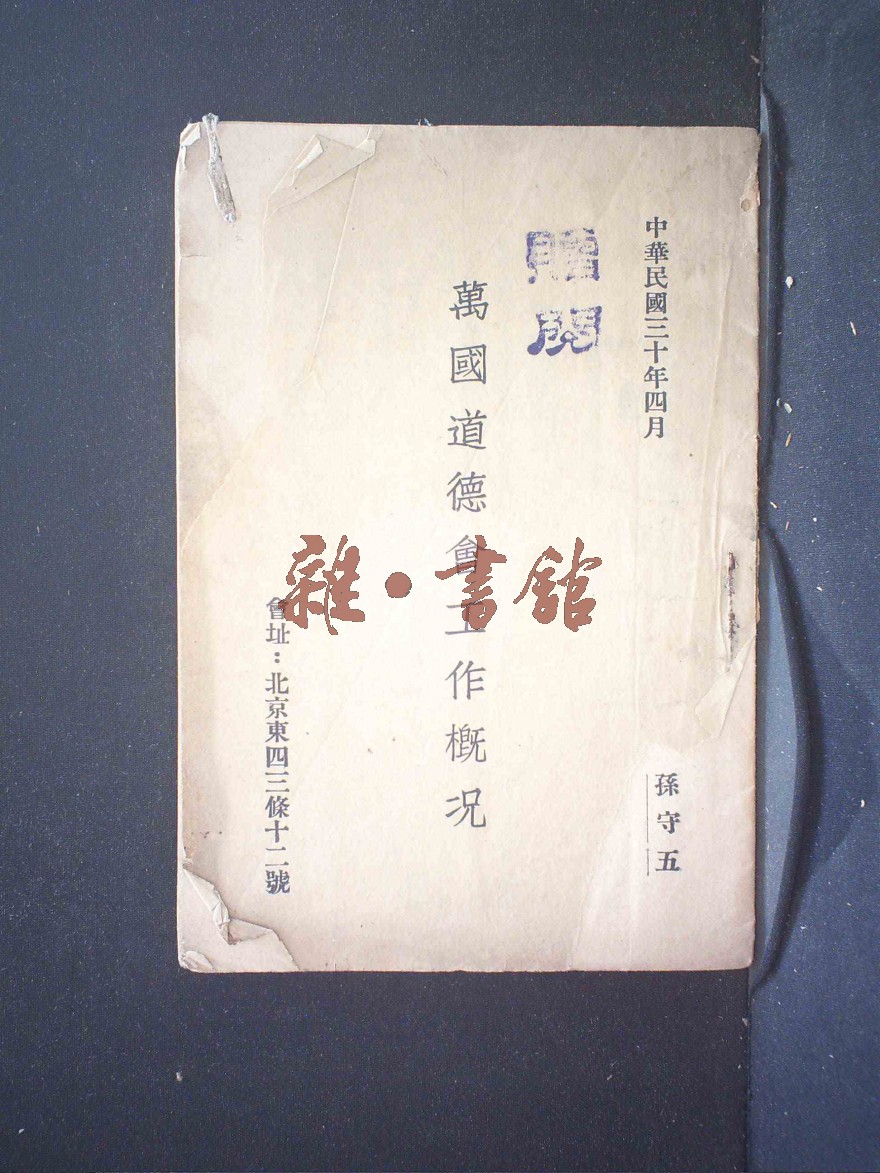 中華民國三十年四月
孫守五
贈閱
萬國道德會工作概况
會址：北京東四三條十二號
雜·書館